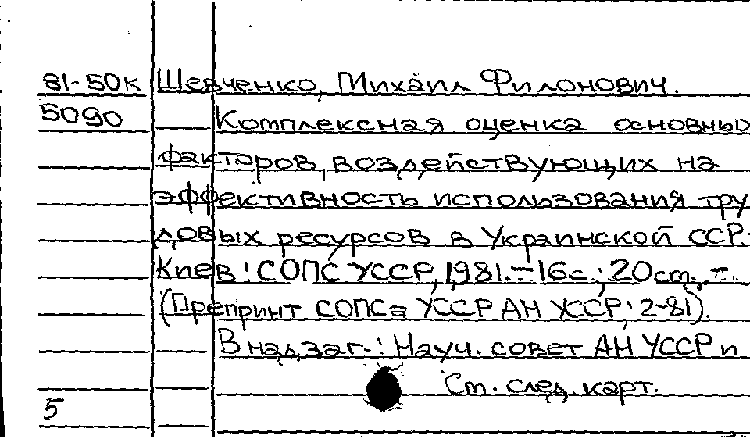 81-50к Шевченко, Михаил Филонович.
5090 Комплексная оценка основных
факторов, воздействующих на
эффективность использования тру
довых ресурсов в Украинской ССР.-
Киев: СОПС УССР, 1981.-16с.; 20см.-
(Препринт СОПСа УССР АН УССР; 2-81).
В надзаг.: Науч. совет АН УССР и
См. след. карт.
5